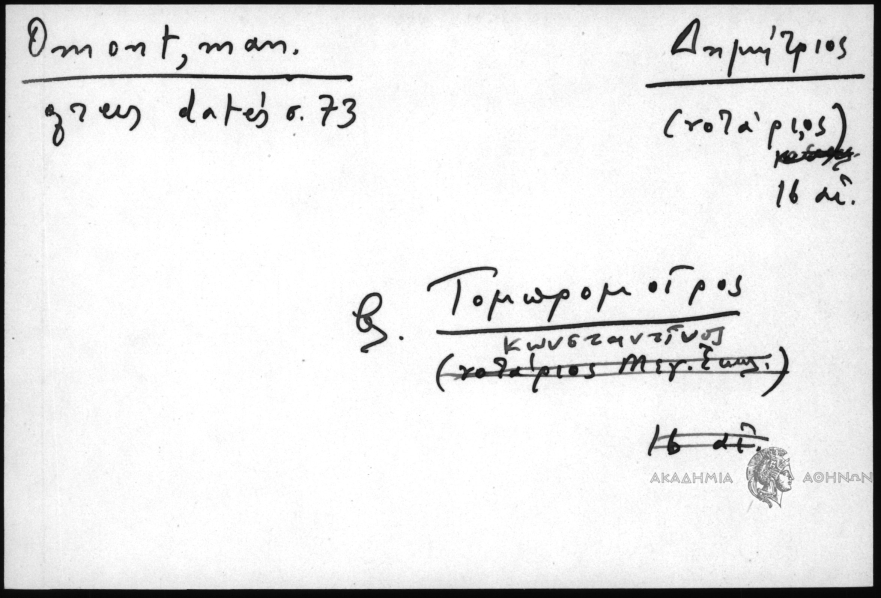 Omont, man.
grecs datés σ. 73
Δημήτριος
(νοτάριος)
16 αἰ.
βλ. Τομπρομοῖρος
Κωνσταντῖνος
(νοτάριος Μεγ. Ἐκκλ.)
16 αἰ.
ΑΚΑΔΗΜΙΑ ΑΘΗΝΩΝ